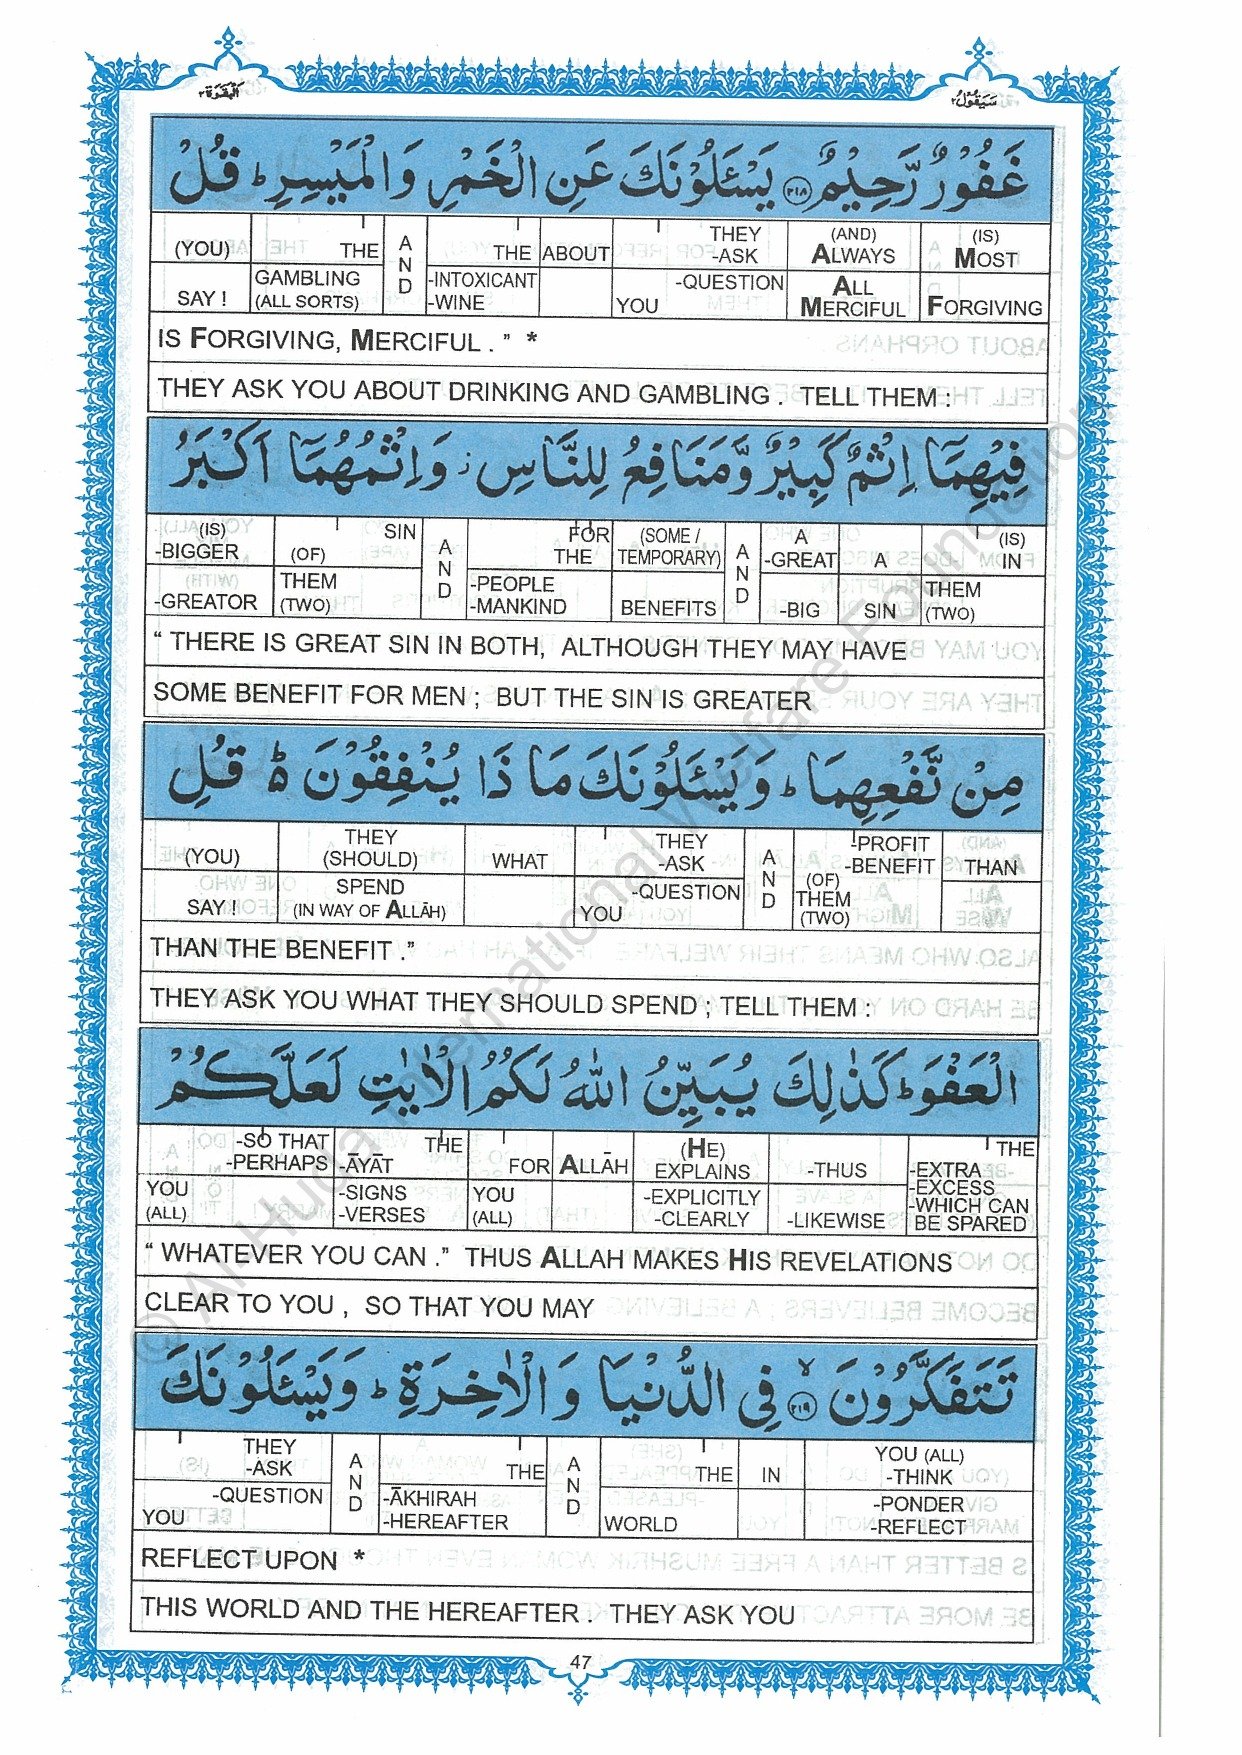 البقرة ٢
سَيَقُولُ ٢
غَفُوْرٌ رَّحِيْمٌ ۝٢١٨ يَسْـَٔلُوْنَكَ عَنِ الْخَمْرِ وَالْمَيْسِرِ ؕ قُلْ
(YOU) THE A THE ABOUT THEY (AND) (IS)
N -ASK ALWAYS MOST
GAMBLING D -INTOXICANT -QUESTION ALL
SAY ! (ALL SORTS) -WINE YOU MERCIFUL FORGIVING
IS FORGIVING, MERCIFUL . ” *
THEY ASK YOU ABOUT DRINKING AND GAMBLING . TELL THEM :
فِيْهِمَآ اِثْمٌ كَبِيْرٌ وَّمَنَافِعُ لِلنَّاسِ ز وَاِثْمُهُمَآ اَكْبَرُ
(IS) SIN A FOR (SOME / A A (IS)
-BIGGER (OF) N THE TEMPORARY) N -GREAT A IN
THEM D -PEOPLE D THEM
-GREATOR (TWO) -MANKIND BENEFITS -BIG SIN (TWO)
“ THERE IS GREAT SIN IN BOTH, ALTHOUGH THEY MAY HAVE
SOME BENEFIT FOR MEN ; BUT THE SIN IS GREATER
مِنْ نَّفْعِهِمَا ؕ وَيَسْـَٔلُوْنَكَ مَا ذَا يُنْفِقُوْنَ ۵ؕ قُلِ
(YOU) THEY WHAT THEY A -PROFIT THAN
(SHOULD) -ASK N -BENEFIT
SPEND -QUESTION D (OF) THEM
SAY ! (IN WAY OF ALLĀH) YOU (TWO)
THAN THE BENEFIT .”
THEY ASK YOU WHAT THEY SHOULD SPEND ; TELL THEM :
الْعَفْوَ ؕ كَذٰلِكَ يُبَيِّنُ اللّٰهُ لَكُمُ الْاٰيٰتِ لَعَلَّكُمْ
-SO THAT THE (HE) THE
-PERHAPS -ĀYĀT FOR ALLĀH EXPLAINS -THUS -EXTRA
YOU -SIGNS YOU -EXPLICITLY -EXCESS
-WHICH CAN
(ALL) -VERSES (ALL) -CLEARLY -LIKEWISE BE SPARED
“ WHATEVER YOU CAN .” THUS ALLAH MAKES HIS REVELATIONS
CLEAR TO YOU , SO THAT YOU MAY
تَتَفَكَّرُوْنَ ۝٢١٩ۙ فِى الدُّنْيَا وَالْاٰخِرَةِ ؕ وَيَسْـَٔلُوْنَكَ
THEY A THE A THE IN YOU (ALL)
-ASK N N -THINK
-QUESTION D -ĀKHIRAH D -PONDER
YOU -HEREAFTER WORLD -REFLECT
REFLECT UPON *
THIS WORLD AND THE HEREAFTER . THEY ASK YOU
47
© Al-Huda International Welfare Foundation